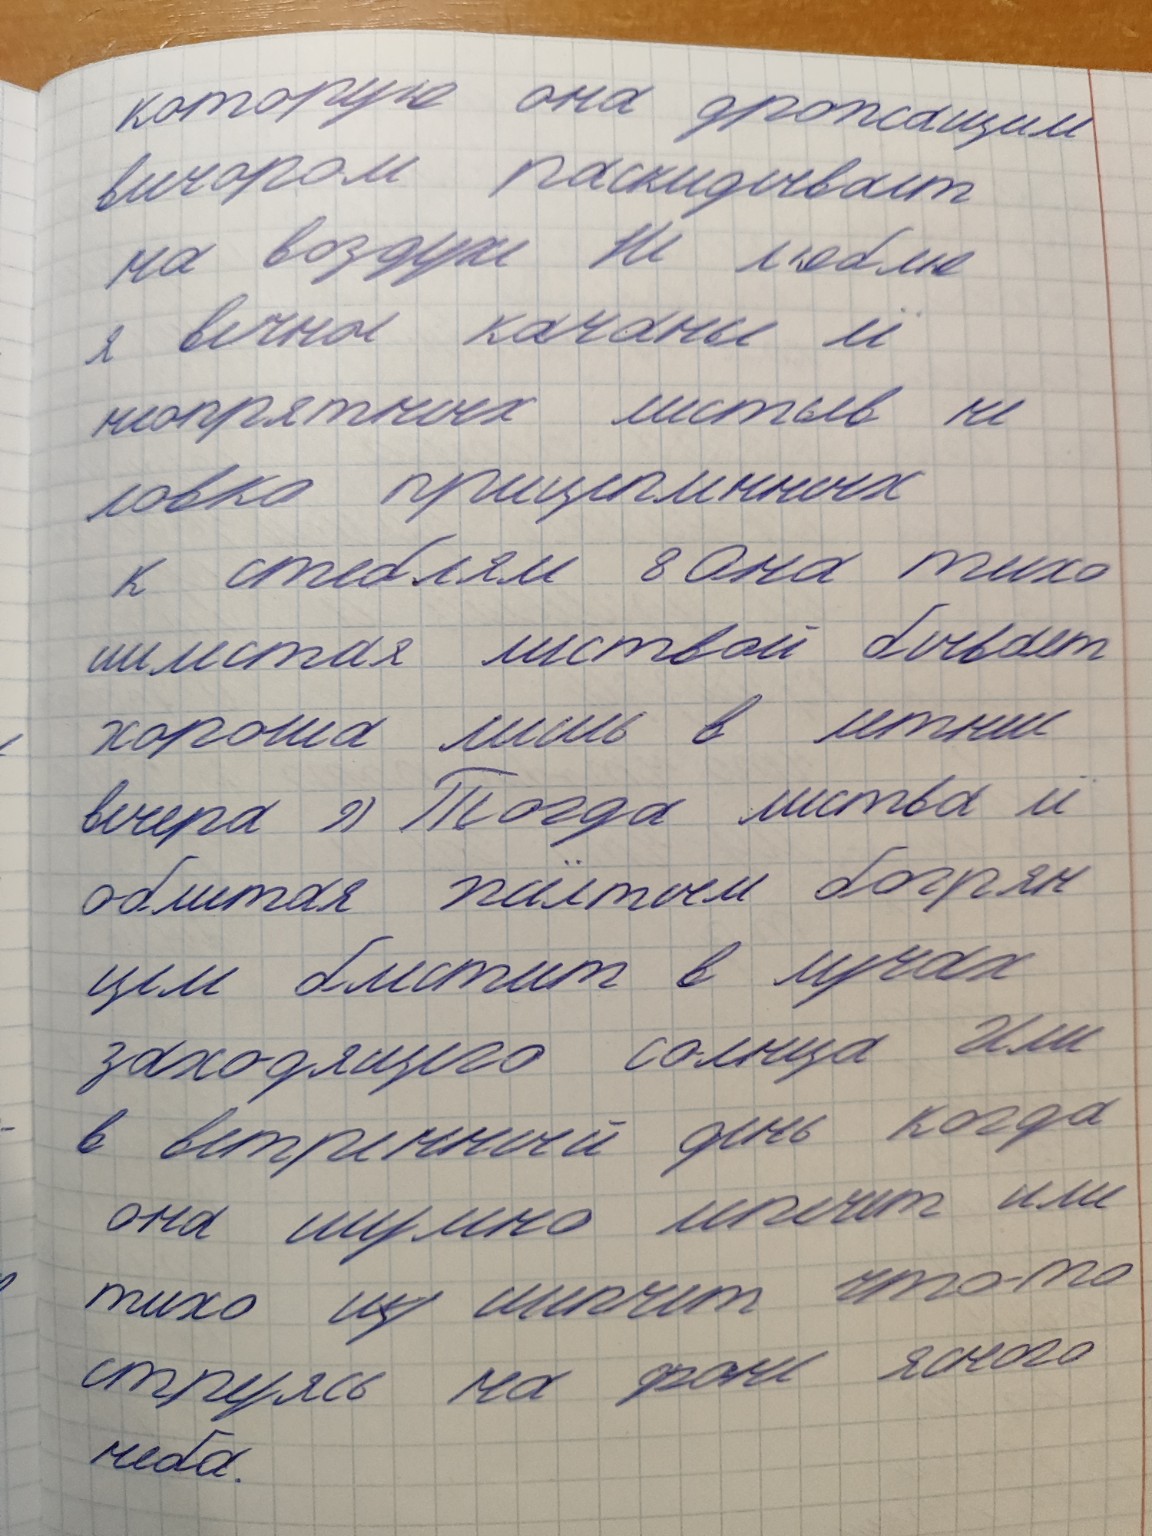 которую она дрожащим
вичором паскидывает
на воздухе Не люблю
я вечное качанье её
неопрятных листьев не
ловко прицепленных
к стеблям 8 Она тихо
шелстая листвой бывает
хороша лишь в летние
вечера я) Тогда листва её
облитая жёлтым богрян
цем блестит в лучах
заходящего солнца Или
в ветренный день когда
она шумно лепечет или
тихо шепчет что-то
струясь на фоне ясного
неба.